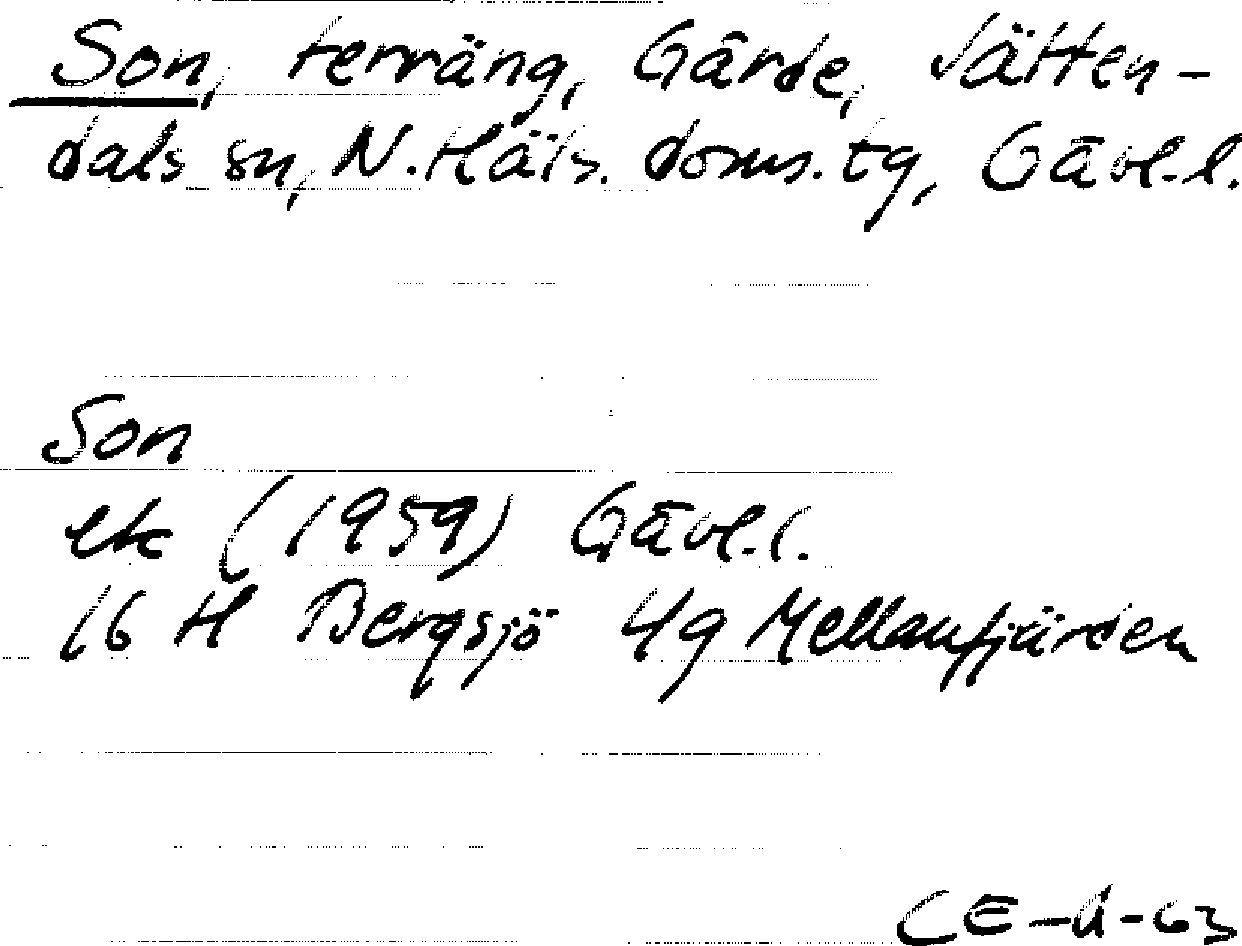 Son, terräng, Gärde, Jätten-
dals sn, N. Häls. doms. tg, Gävl. l.
Son
ek (1959) Gävl. l.
16 H Bergsjö 4g Mellanfjärden
CE-Å-63